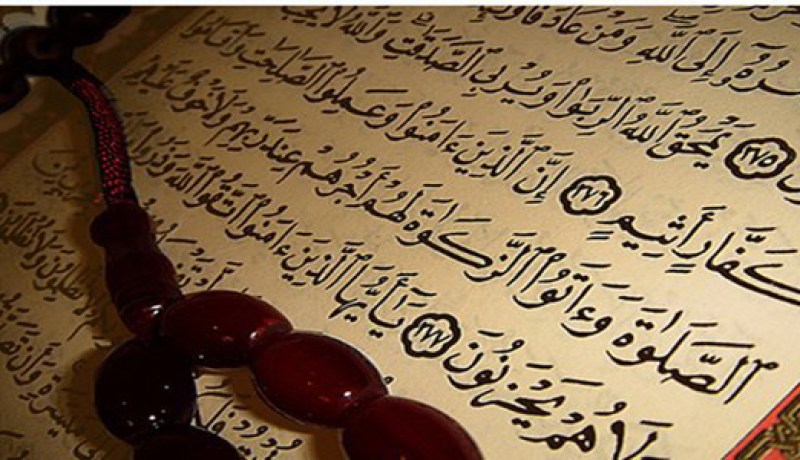 ـرُهُۥٓ إِلَى ٱللَّهِ وَمَنْ عَادَ فَأُو
ـونَ ٢٧٥ يَمْحَقُ ٱللَّهُ ٱلرِّبَوٰا۟ وَيُرْبِى ٱلصَّدَقَٰتِ وَٱللَّهُ لَا يُحِبُّ
كَفَّارٍ أَثِيمٍ ٢٧٦ إِنَّ ٱلَّذِينَ ءَامَنُوا۟ وَعَمِلُوا۟ ٱلصَّٰلِحَٰتِ وَأَقَامُوا۟
ٱلصَّلَوٰةَ وَءَاتَوُا۟ ٱلزَّكَوٰةَ لَهُمْ أَجْرُهُمْ عِندَ رَبِّهِمْ وَلَا خَوْفٌ عَلَيْهِمْ
وَلَا هُمْ يَحْزَنُونَ ٢٧٧ يَٰٓأَيُّهَا ٱلَّذِينَ ءَامَنُوا۟ ٱتَّقُوا۟ ٱللَّهَ وَذَرُوا۟
لَا تَظْلِمُونَ وَلَا تُظْلَمُونَ
مَيْسَرَةٍ وَأَن